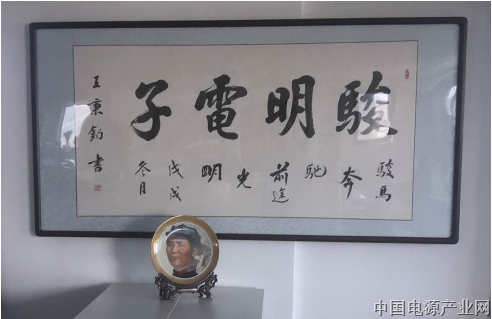 駿明電子
駿馬
奔
馳
前途
光
明
戊戌
冬月
王秉鈞書
中国电源产业网